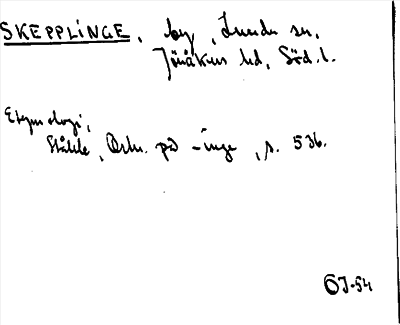 SKEPPLINGE, by, Lunda sn,
Jönåkers hd, Söd.l.
Etymologi,
Ståhle, Ortn. på -inge, s. 536.
OJ-54